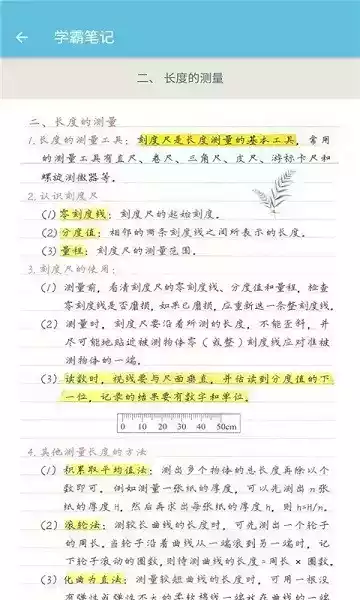 学霸笔记
二、 长度的测量
二、长度的测量
1.长度的测量工具：刻度尺是长度测量的基本工具，常用
的测量工具有直尺、卷尺、三角尺、皮尺、游标卡尺和
螺旋测微器等。
2.认识刻度尺
(1) 零刻度线：刻度尺的起始刻度。
(2) 分度值：相邻的两条刻度线之间所表示的长度。
(3) 量程：刻度尺的测量范围。
3.刻度尺的使用：
(1) 测量前，看清刻度尺的零刻度线、分度值和量程，检查
零刻度线是否磨损，如果已磨损，应重新选一条整刻度线。
(2) 测量时，刻度尺要沿着所测的长度，不能歪斜，并
尽可能地贴近被测物体零（或整）刻度线应对准被
测物体的一端。
(3) 读数时，视线要与尺面垂直，并估读到分度值的下
一位，记录的结果要有数字和单位。
0 10 20 30 40 50cm
4.其他测量长度的方法
(1) 积累取平均值法：测出多个物体的总长度再除以个
数即可，例如测量一张纸的厚度，可以先测出n张
纸的厚度H，然后再求出每张纸的厚度h，则h=H/n。
(2) 滚轮法：测较长曲线的长度时，可先测出一个轮子
的周长，当轮子沿着曲线从一端滚到另一端时，记
下轮子滚动的圈数，则待测曲线的长度=周长×圈数。
(3) 化曲为直法：测量较短曲线的长度时，可用一根没
有弹性或弹性不大的柔软棉线一端放在曲线的一端